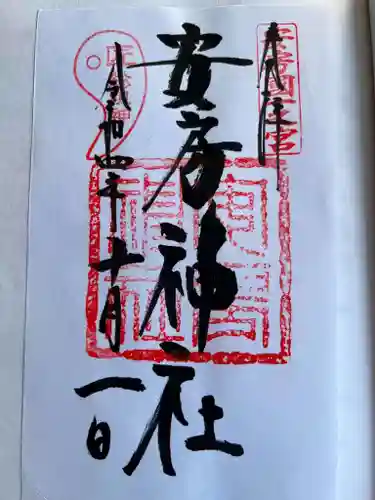 奉拝
安房国一宮
安房神社
安房神社
令和四年十月
一日